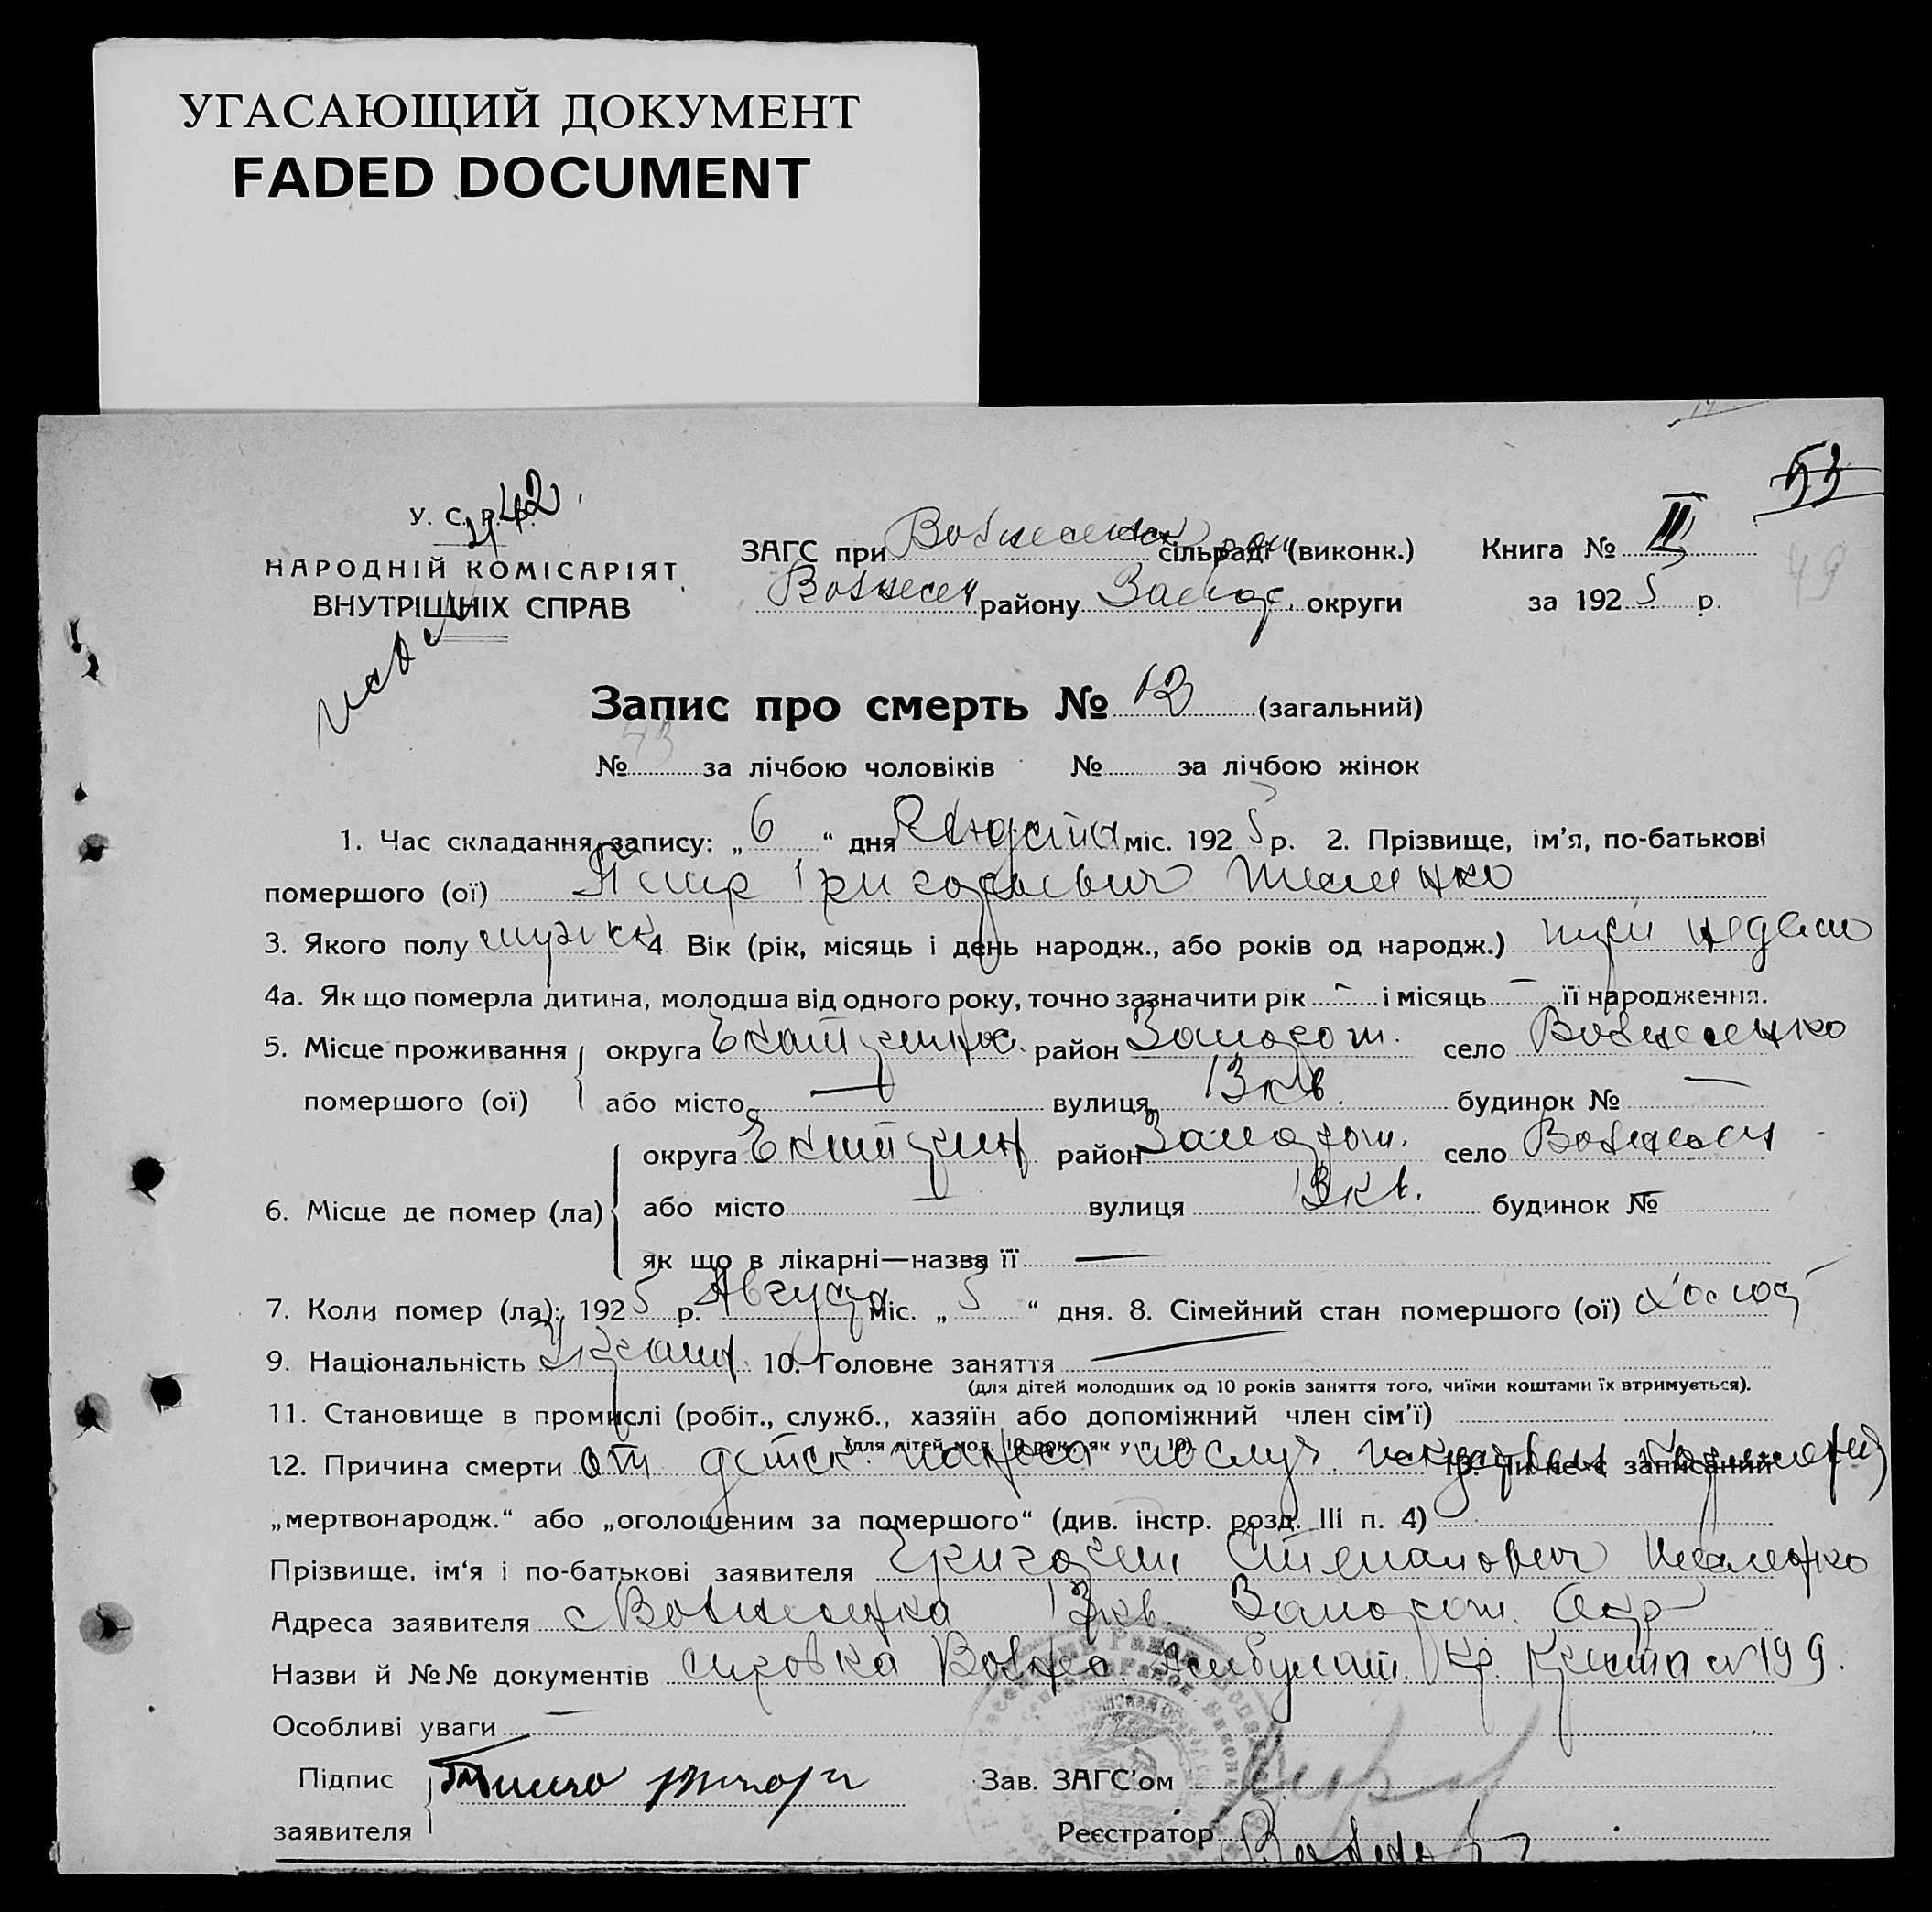 УГАСАЮЩИЙ ДОКУМЕНТ
FADED DOCUMENT
53
У. С. Р. Р.
НАРОДНІЙ КОМІСАРІЯТ
ВНУТРІШНІХ СПРАВ
ЗАГС при Вознесенск сільраді (виконк.) Книга № II
49
Вознесен району Запор. округи за 1925 р.
Запис про смерть № 12 (загальний)
№ 43 за лічбою чоловіків № за лічбою жінок
1. Час складання запису: „ 6 “ дня Августа міс. 1925 р. 2. Прізвище, ім'я, по-батькові
помершого (ої) Петр Григорьевич
3. Якого полу мужск 4 Вік (рік, місяць і день народж., або років од народж.) три недели
4а. Як що померла дитина, молодша від одного року, точно зазначити рік – і місяць – її народження.
5. Місце проживання округа Екатеринос. район Запорож. село Вознесенко
помершого (ої) або місто — вулиця 13 кв. будинок № —
округа Екатерин район Запорож. село Вознесен
6. Місце де помер (ла) або місто — вулиця 13 кв. будинок № —
як що в лікарні—назва її —
7. Коли помер (ла): 1925 р. Августа міс. „ 5 “ дня. 8. Сімейний стан помершого (ої) холост
9. Національність Украин. 10. Головне заняття —
(для дітей молодших од 10 років заняття того, чиїми коштами їх втримується).
11. Становище в промислі (робіт., служб., хазяїн або допоміжний член сім'ї)
(для дітей мол. 10 рок. як у п. 10).
12. Причина смерти от детск. поноса 13. Чи не є записаний
„мертвонародж.“ або „оголошеним за помершого“ (див. інстр. розд. III п. 4)
Прізвище, ім'я і по-батькові заявителя Григорий Степанович
Адреса заявителя с Вознесенка 13 кв. Запорож. Окр
Назви й №№ документів справка Вознес. Амбулат. Кр. Креста № 199.
Особливі уваги —
Підпис Зав. ЗАГС'ом
заявителя Реєстратор